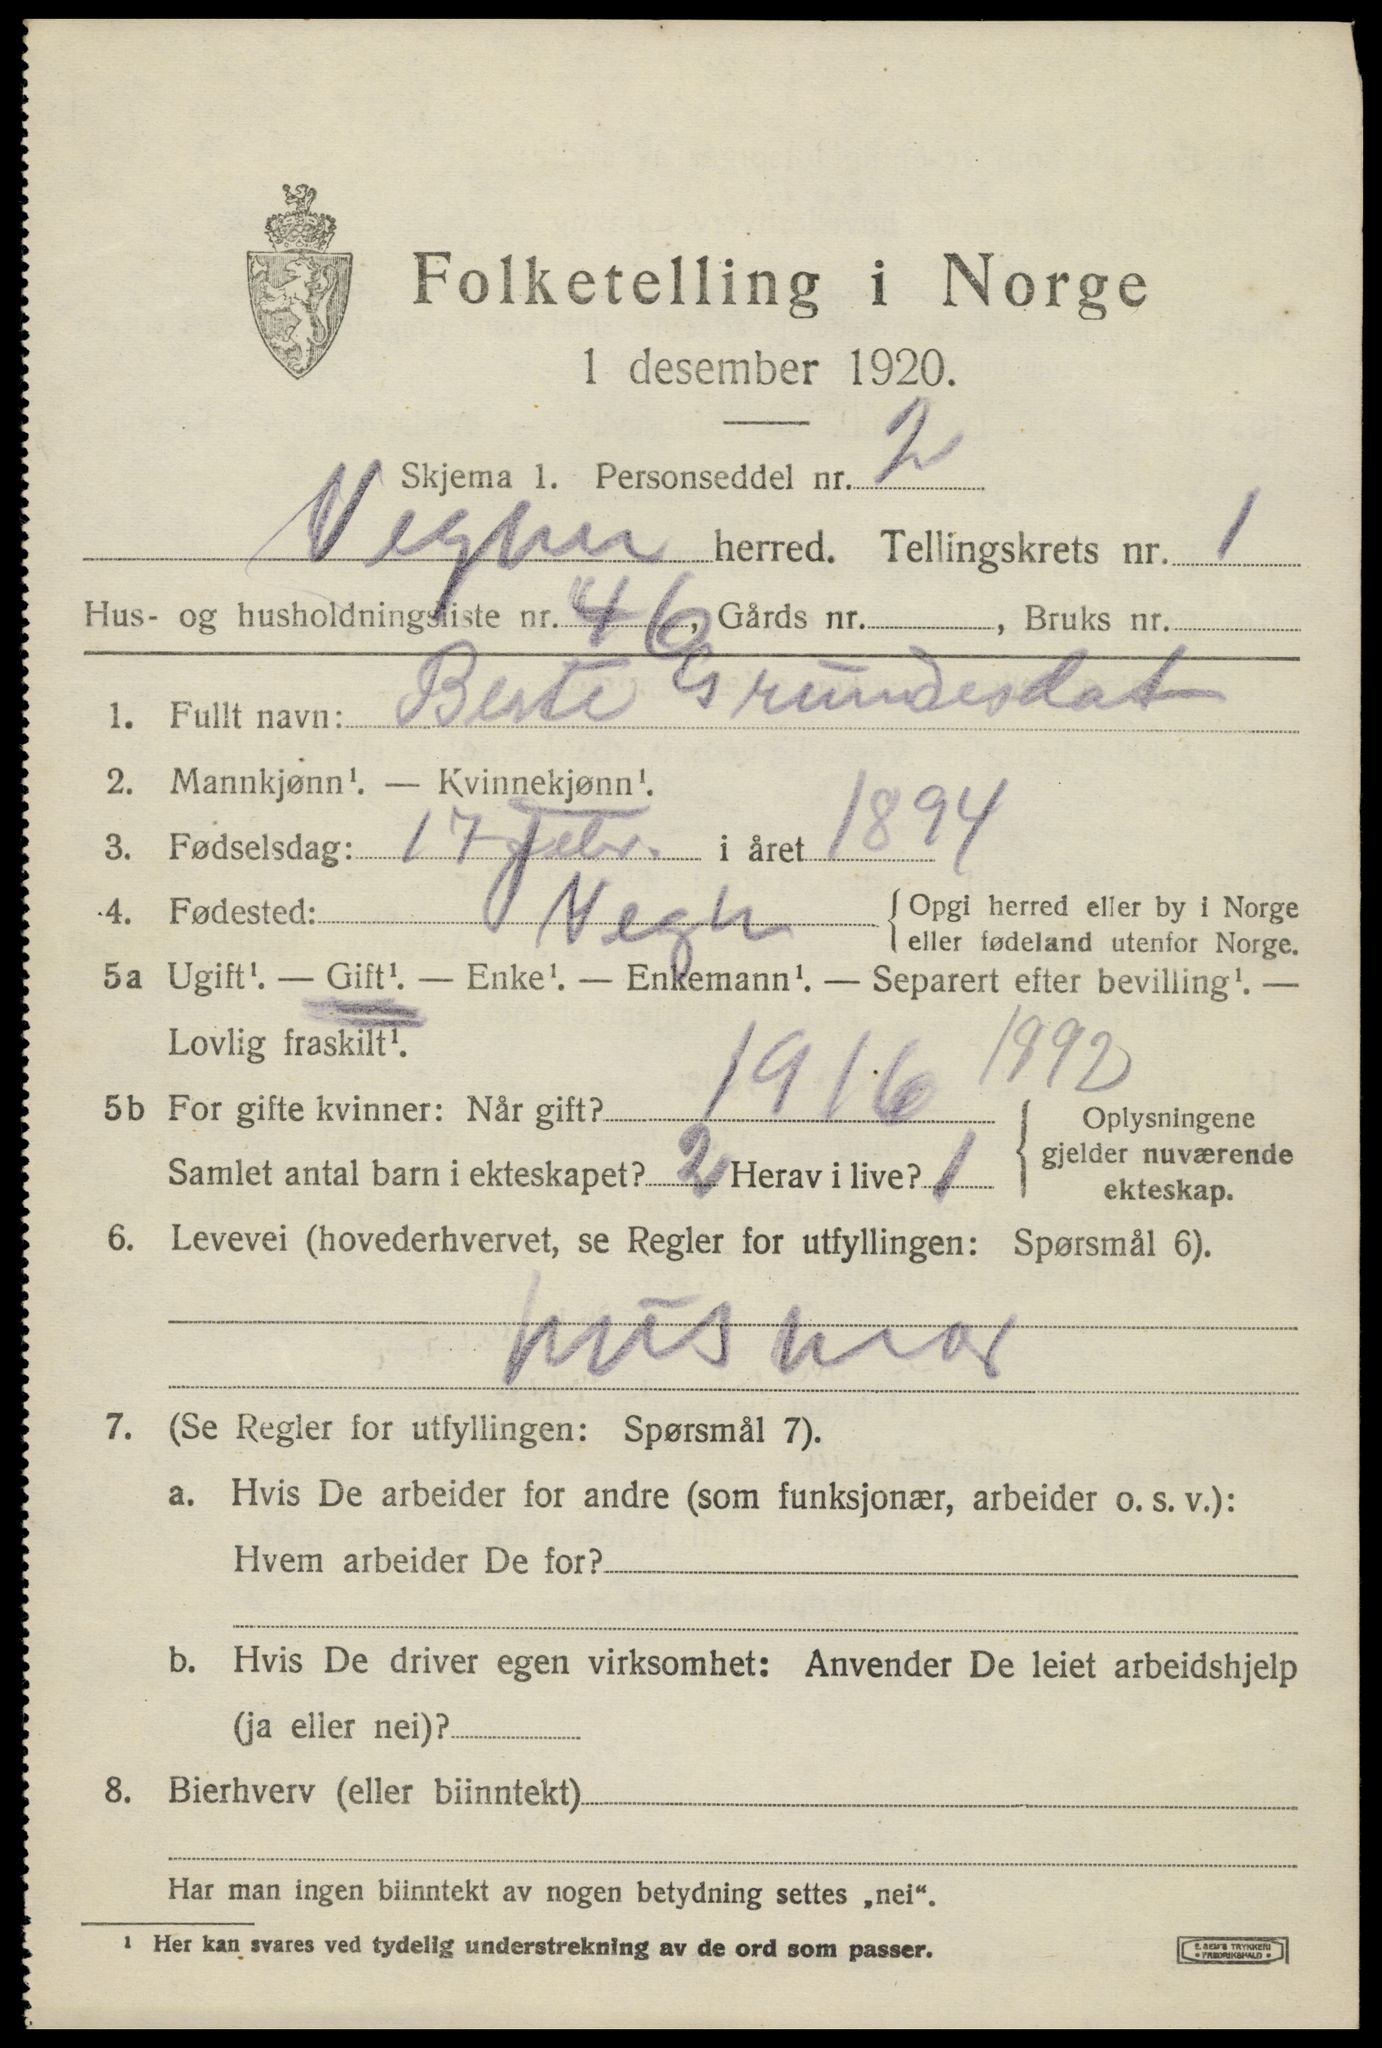 Folketelling i Norge
1 desember 1920.
Skjema 1. Personseddel nr. 2
herred. Tellingskrets nr. 1
Hus- og husholdningsliste nr. 46, Gårds nr. , Bruks nr.
1. Fullt navn: Berte Grundesdat
2. Mannkjønn¹. — Kvinnekjønn¹.
3. Fødselsdag: 17 febr. i året 1894
4. Fødested: Vegh {Opgi herred eller by i Norge
eller fødeland utenfor Norge.
5a Ugift¹. — Gift¹. — Enke¹. — Enkemann¹. — Separert efter bevilling¹. —
Lovlig fraskilt¹.
1892
5b For gifte kvinner: Når gift? 1916
Samlet antal barn i ekteskapet? 2 Herav i live? 1
{Oplysningene
gjelder nuværende
ekteskap.
6. Levevei (hovederhvervet, se Regler for utfyllingen: Spørsmål 6).
husmor
7. (Se Regler for utfyllingen: Spørsmål 7).
a. Hvis De arbeider for andre (som funksjonær, arbeider o. s. v.):
Hvem arbeider De for?
b. Hvis De driver egen virksomhet: Anvender De leiet arbeidshjelp
(ja eller nei)?
8. Bierhverv (eller biinntekt)
Har man ingen biinntekt av nogen betydning settes „nei“.
¹ Her kan svares ved tydelig understrekning av de ord som passer.
E. SEM'S TRYKKERI
• FREDRIKSHALD •